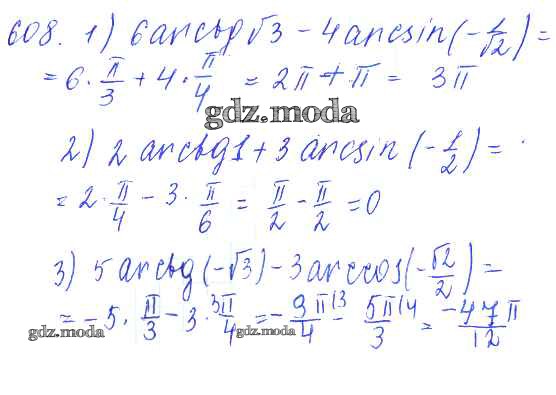 608. 1) 6 arctg √3 - 4 arcsin (- 1/√2) =
= 6 · π/3 + 4 · π/4 = 2π + π = 3π
gdz.moda
2) 2 arctg 1 + 3 arcsin (- 1/2) =
= 2 · π/4 - 3 · π/6 = π/2 - π/2 = 0
3) 5 arctg (-√3) - 3 arccos (- √2/2) =
= -5 · π/3 - 3 · 3π/4 = - 9π/4 |3 - 5π/3 |4 = -47π/12
gdz.moda gdz.moda